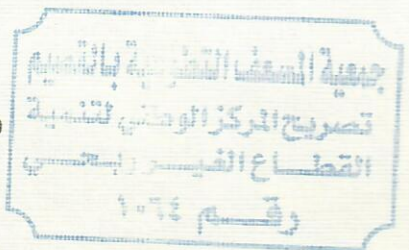 جمعية السعف التطوعية بالقصيم
تصريح المركز الوطني لتنمية
القطاع الغير ربحي
رقم ١٠٦٤